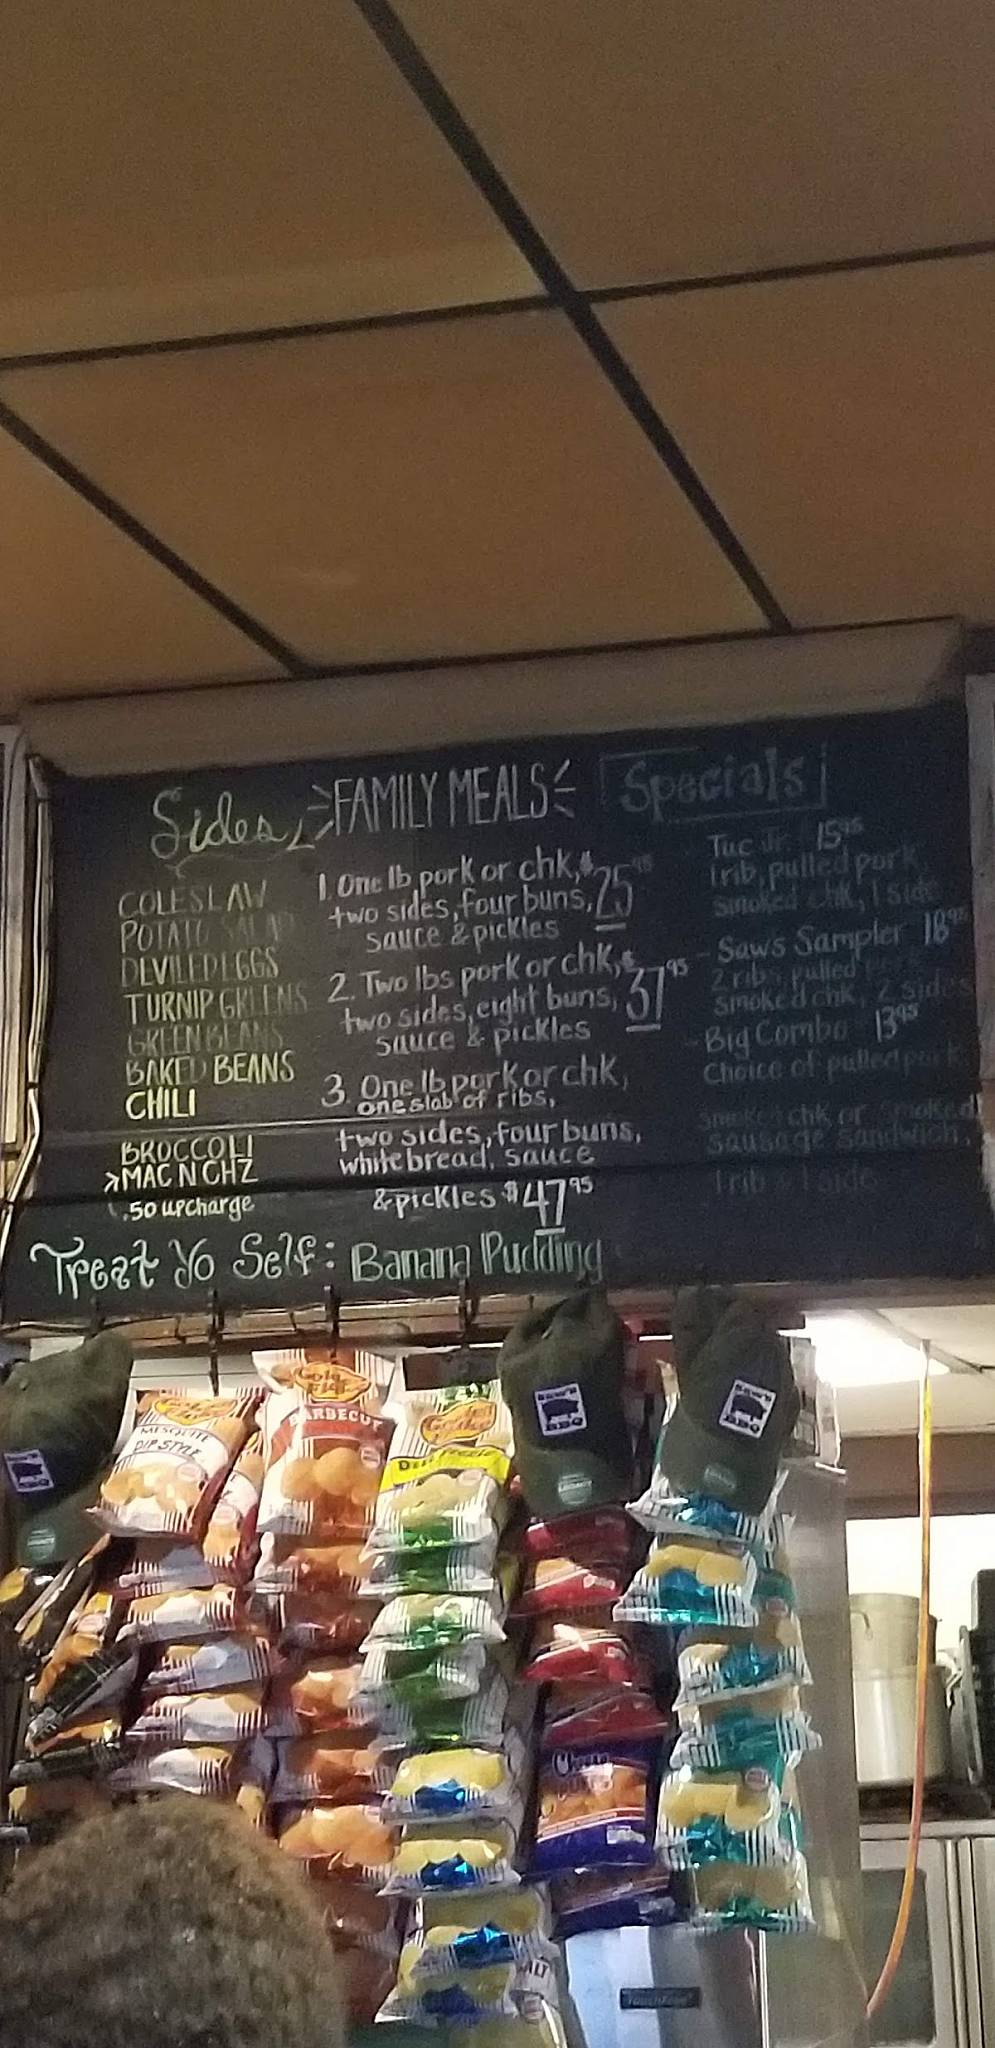 Sides
COLESLAW
POTATO SALAD
DEVILED EGGS
TURNIP GREENS
GREEN BEANS
BAKED BEANS
CHILI
BROCCOLI
>MAC N CHZ
.50 upcharge
FAMILY MEALS
1. One lb pork or chk, $25 95
two sides, four buns,
sauce & pickles
2. Two lbs pork or chk, $37 95
two sides, eight buns,
sauce & pickles
3. One lb pork or chk,
one slab of ribs,
two sides, four buns,
white bread, sauce
& pickles $47 95
Specials
Tuc Jr. 15 95
1 rib, pulled pork,
smoked chk, 1 side
- Saw's Sampler 18 95
2 ribs, pulled pork
smoked chk, 2 sides
- Big Combo 13 95
Choice of pulled pork
smoked chk or smoked
sausage sandwich,
1 rib 1 side
Treat Yo Self: Banana Pudding
Golden Flake
MESQUITE
DIP STYLE
Golden Flake
BARBECUE
Golden
SAW'S
BBQ
SAW'S
BBQ